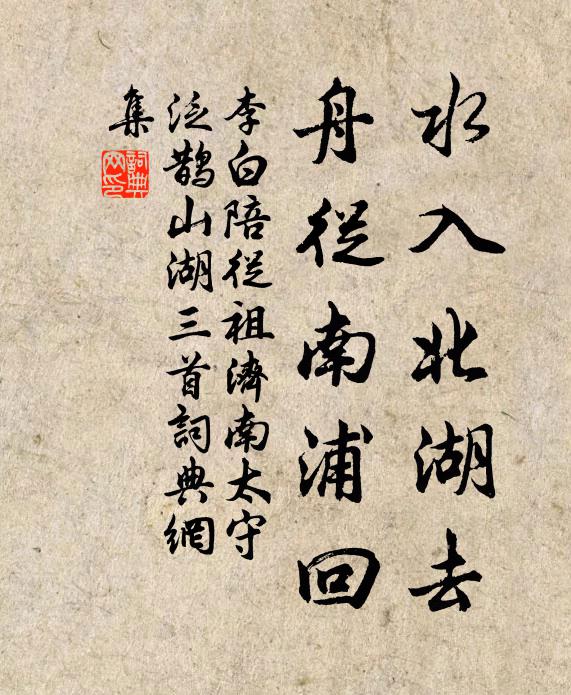 水入北湖去
舟從南浦回
李白陪從祖濟南太守
泛鵲山湖三首詞典網
集
詞典
网印